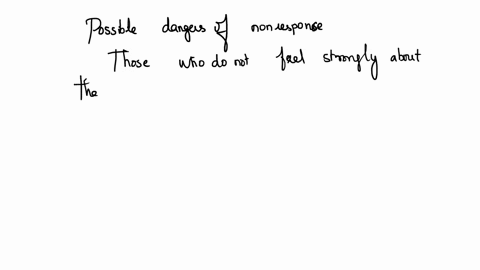 Possible dangers of nonresponse
Those who do not feel strongly about
the